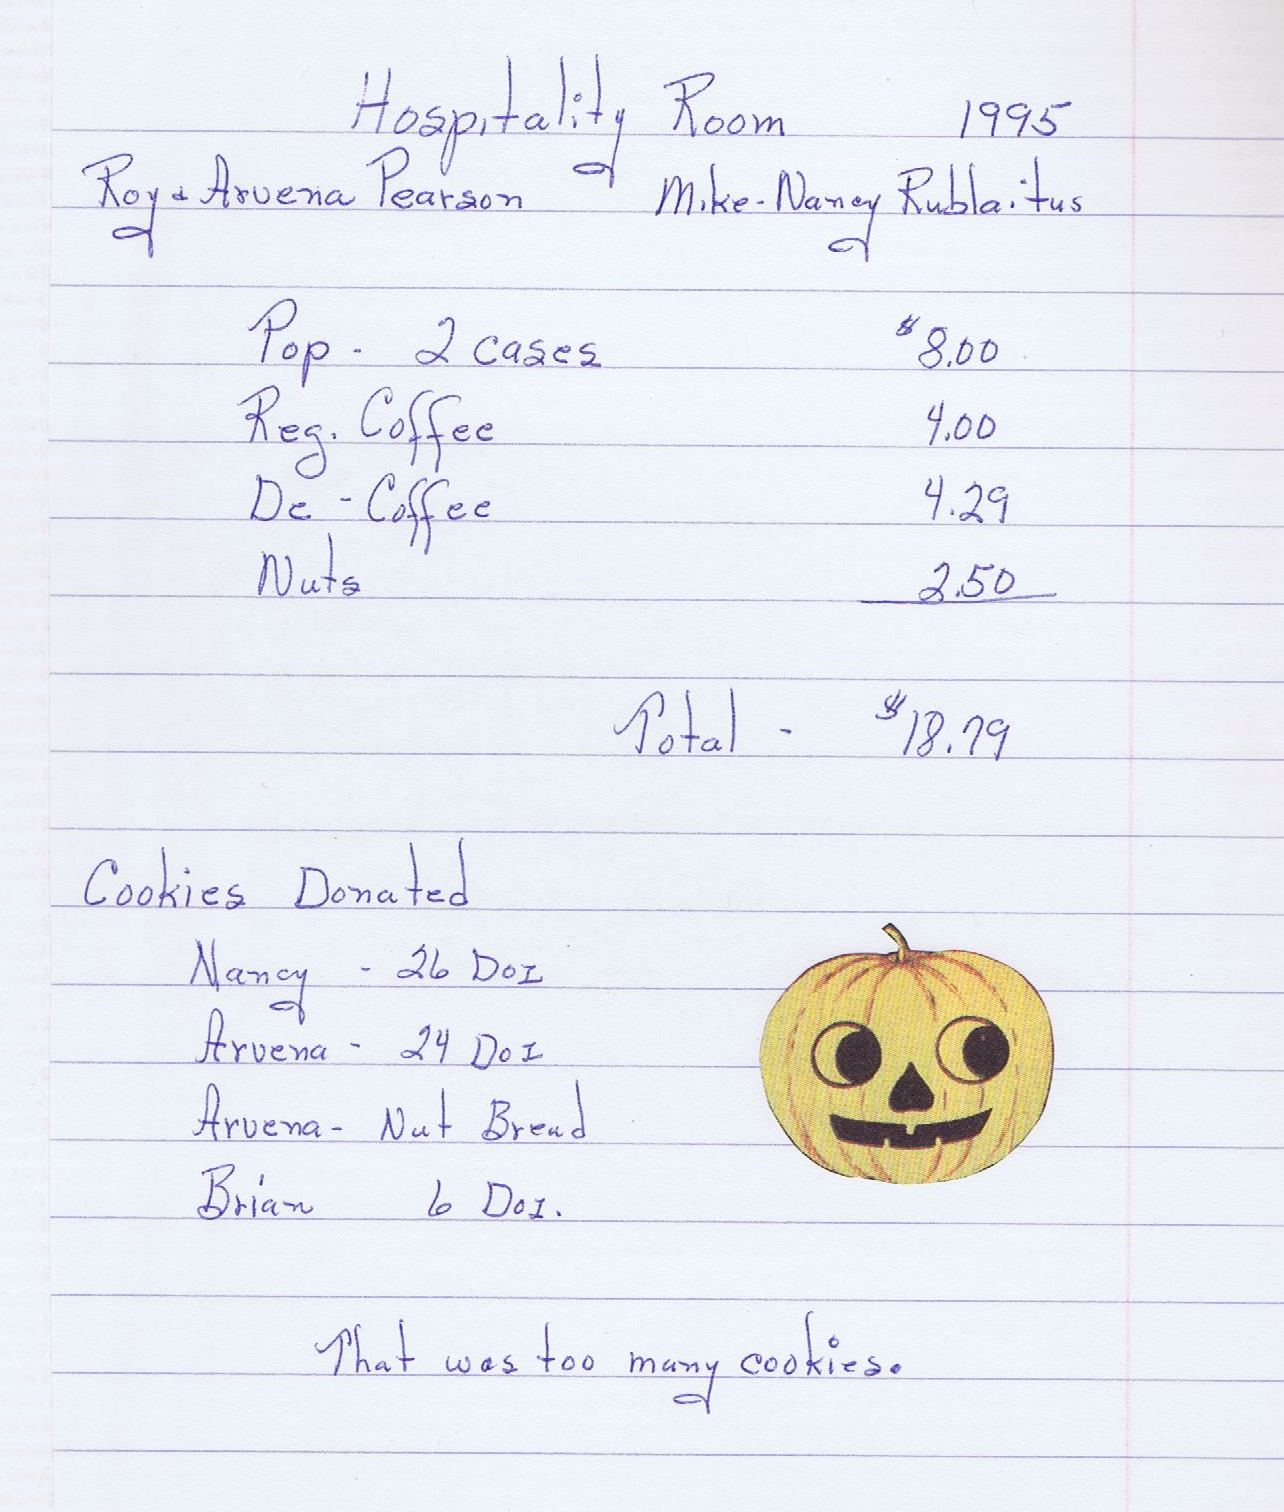 Hospitality Room 1995
Roy & Arvena Pearson Mike-Nancy Rublaitus
Pop - 2 cases $8.00
Reg. Coffee 4.00
De-Coffee 4.29
Nuts 2.50
Total - $18.79
Cookies Donated
Nancy - 26 Doz
Arvena - 24 Doz
Arvena - Nut Bread
Brian 6 Doz.
That was too many cookies.